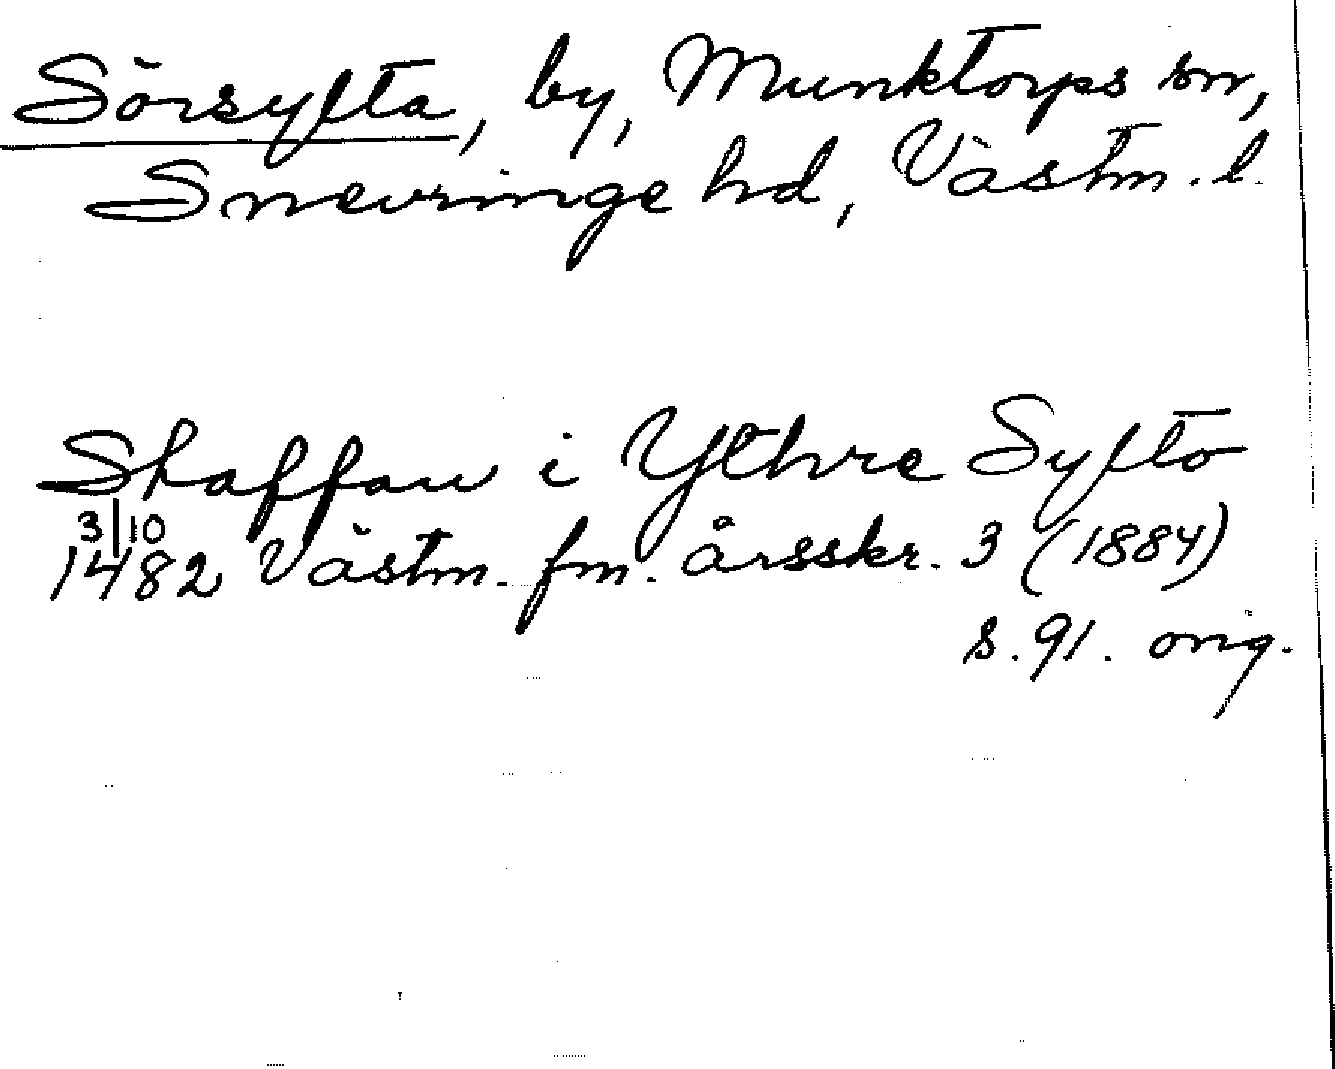 Sörsylta, by, Munktorps sn,
Snevringe hd, Västm. l.
Staffan i Ythre Sylto
3/10
1482 Västm. fm. årsskr. 3 (1884)
s. 91. orig.